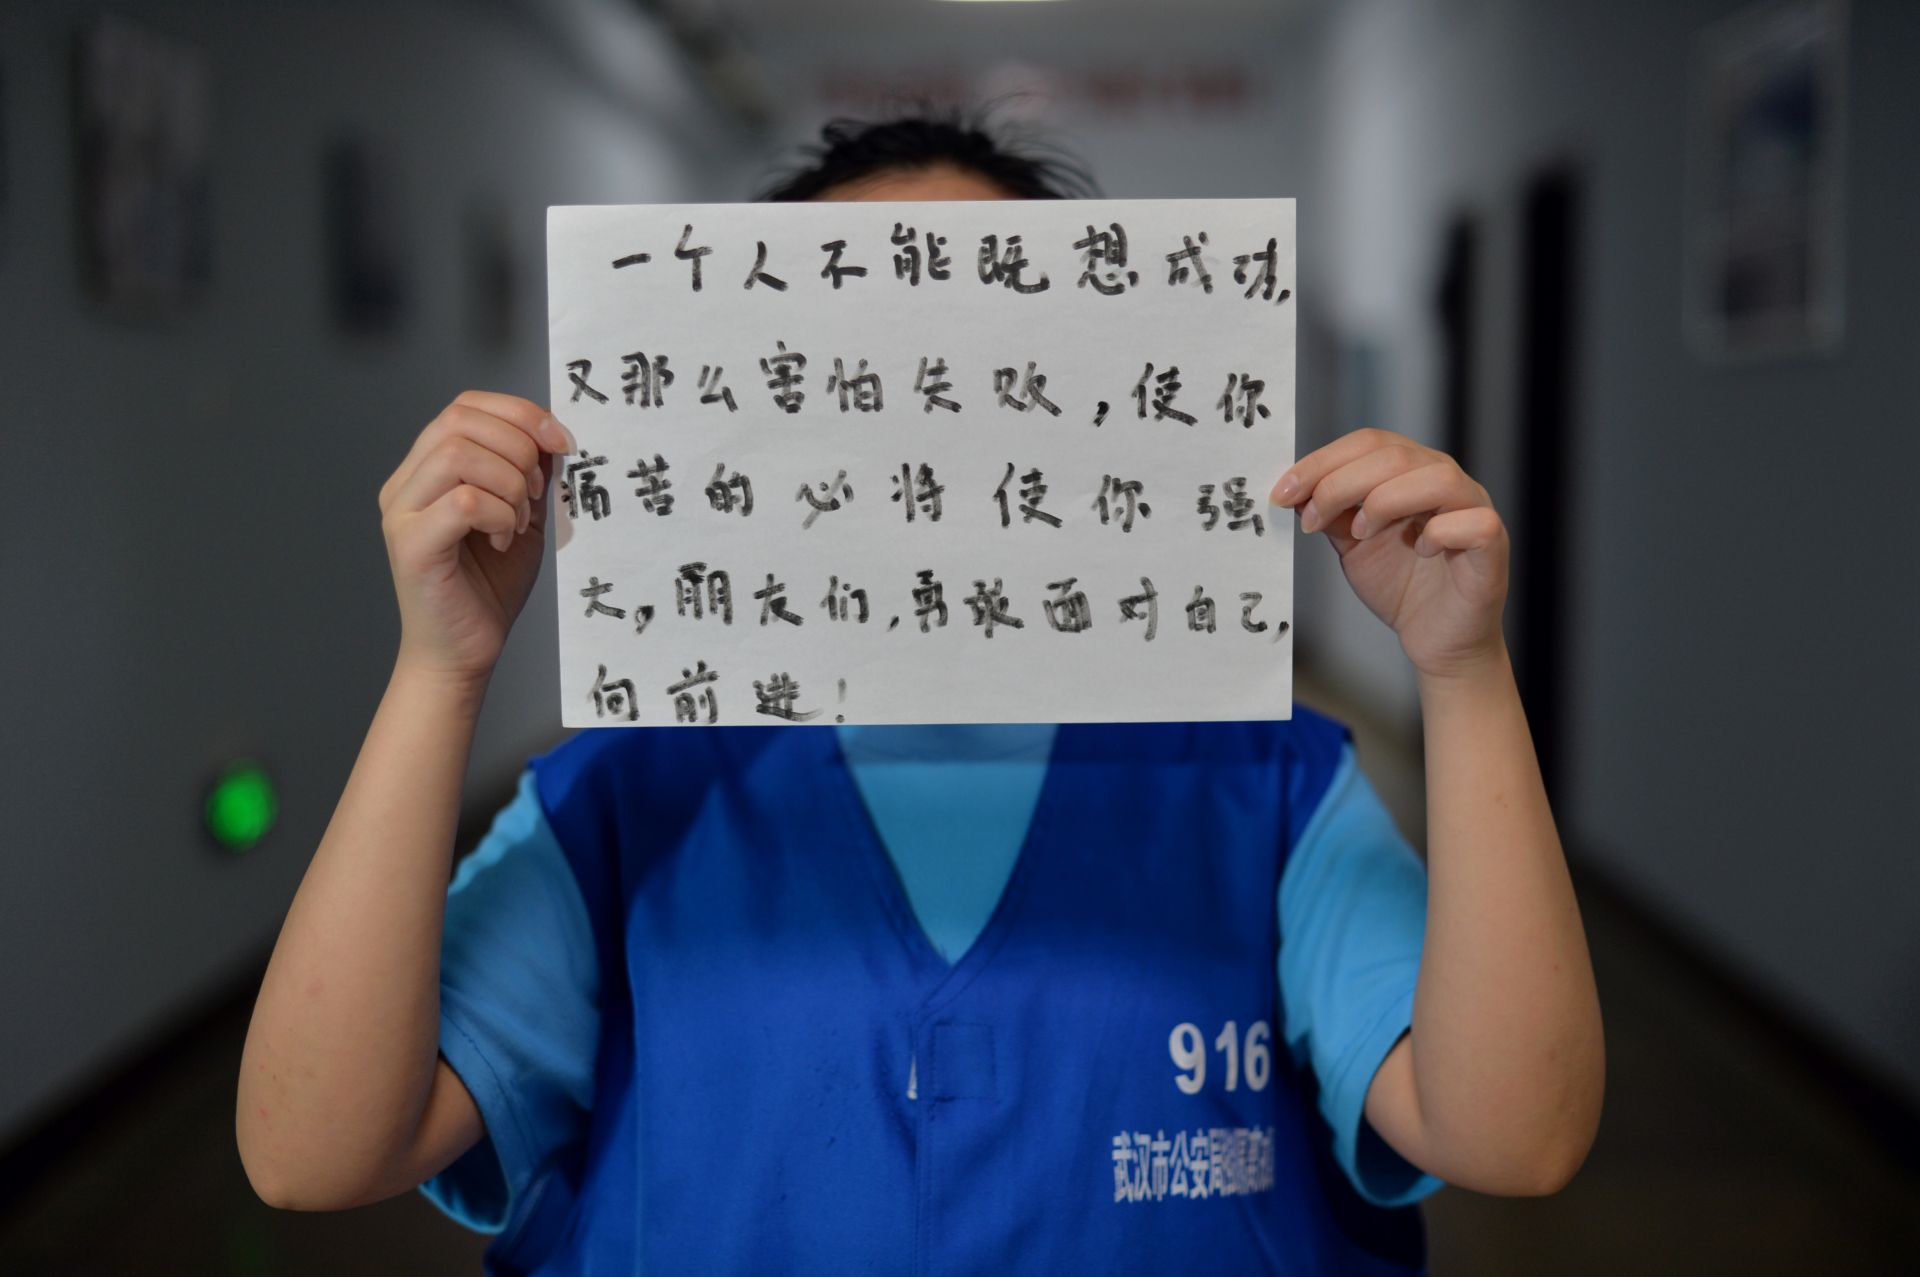 一个人不能既想成功,
又那么害怕失败,使你
痛苦的必将使你强
大,朋友们,勇敢面对自己,
向前进!
916
武汉市公安局强制隔离戒毒